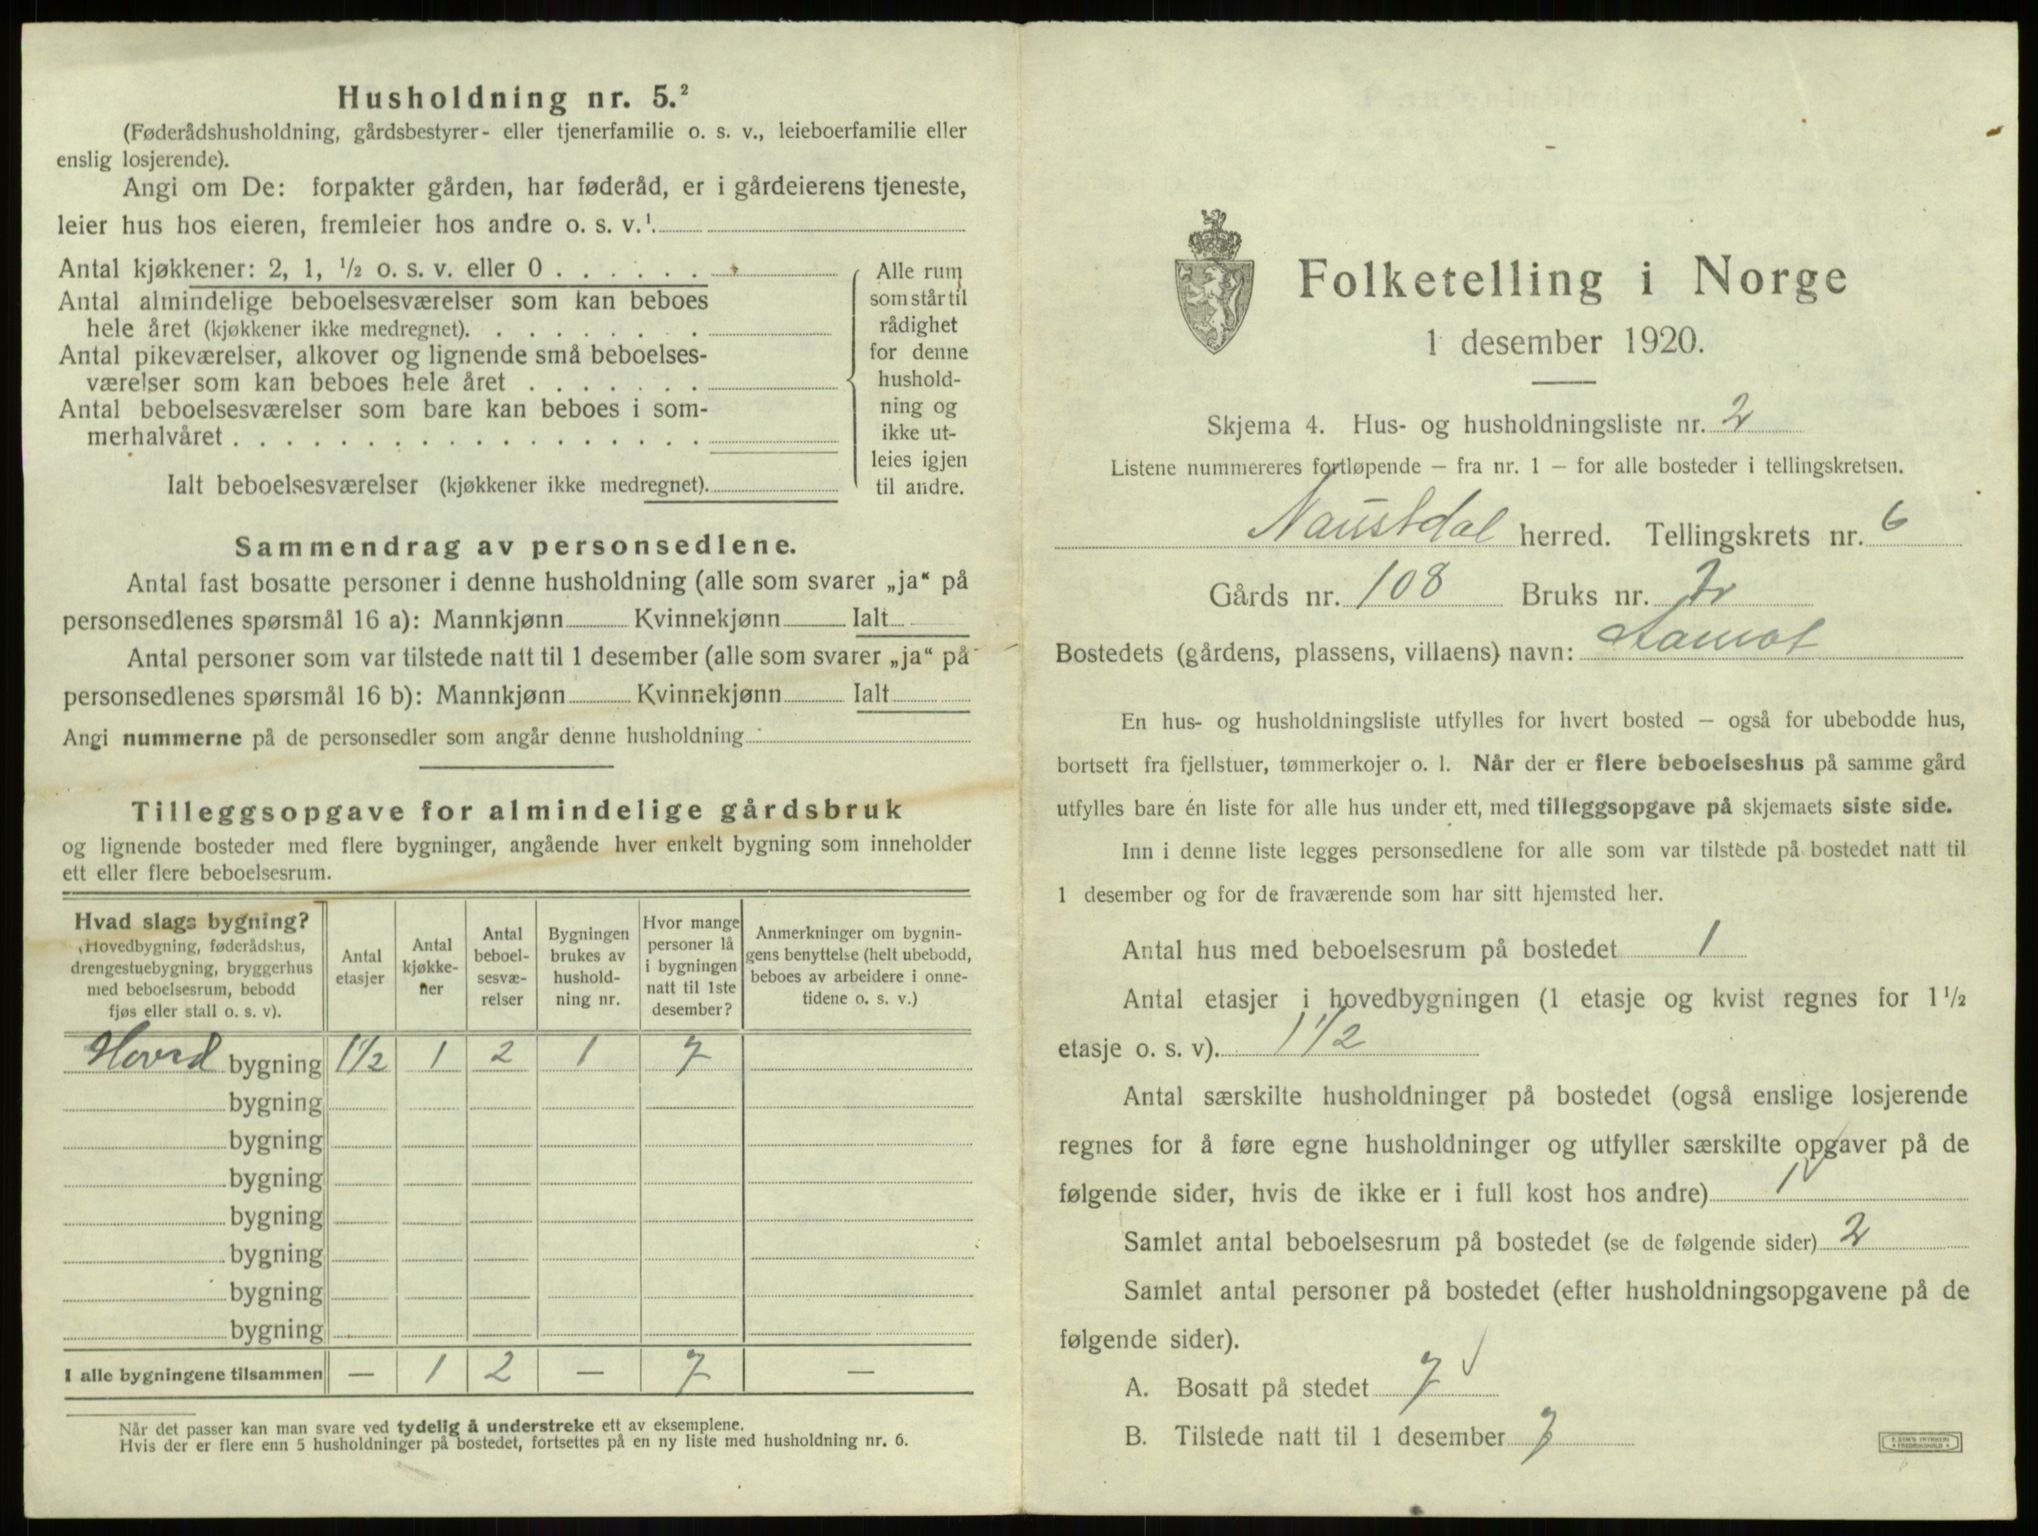 Husholdning nr. 5.²
(Føderådshusholdning, gårdsbestyrer- eller tjenerfamilie o. s. v., leieboerfamilie eller
enslig losjerende).
Angi om De: forpakter gården, har føderåd, er i gårdeierens tjeneste,
leier hus hos eieren, fremleier hos andre o. s. v.¹.
Antal kjøkkener: 2, 1, ½ o. s. v. eller 0 . . . . . .
Antal almindelige beboelsesværelser som kan beboes
hele året (kjøkkener ikke medregnet). . . . . . . . .
Antal pikeværelser, alkover og lignende små beboelses-
værelser som kan beboes hele året . . . . . . .
Antal beboelsesværelser som bare kan beboes i som-
merhalvåret . . . . . . . . . . . . . . . . . .
Ialt beboelsesværelser (kjøkkener ikke medregnet).
Alle rum
som står til
rådighet
for denne
hushold-
ning og
ikke ut-
leies igjen
til andre.
Sammendrag av personsedlene.
Antal fast bosatte personer i denne husholdning (alle som svarer „ja“ på
personsedlenes spørsmål 16 a): Mannkjønn Kvinnekjønn Ialt
Antal personer som var tilstede natt til 1 desember (alle som svarer „ja“ på
personsedlenes spørsmål 16 b): Mannkjønn Kvinnekjønn Ialt
Angi nummerne på de personsedler som angår denne husholdning
Tilleggsopgave for almindelige gårdsbruk
og lignende bosteder med flere bygninger, angående hver enkelt bygning som inneholder
ett eller flere beboelsesrum.
Hvad slags bygning?
(Hovedbygning, føderådshus,
drengestuebygning, bryggerhus
med beboelsesrum, bebodd
fjøs eller stall o. s. v).
Antal
etasjer
Antal
kjøkke-
ner
Antal
beboel-
sesvæ-
relser
Bygningen
brukes av
hushold-
ning nr.
Hvor mange
personer lå
i bygningen
natt til 1ste
desember?
Anmerkninger om bygnin-
gens benyttelse (helt ubebodd,
beboes av arbeidere i onne-
tidene o. s. v.)
Hoved bygning 1½ 1 2 1 7
bygning
bygning
bygning
bygning
bygning
bygning
bygning
I alle bygningene tilsammen — 1 2 — 7 —
Når det passer kan man svare ved tydelig å understreke ett av eksemplene.
Hvis der er flere enn 5 husholdninger på bostedet, fortsettes på en ny liste med husholdning nr. 6.
Folketelling i Norge
1 desember 1920.
Skjema 4. Hus- og husholdningsliste nr. 2
Listene nummereres fortløpende — fra nr. 1 — for alle bosteder i tellingskretsen.
Naustdal herred. Tellingskrets nr. 6
Gårds nr. 108 Bruks nr. 2
Bostedets (gårdens, plassens, villaens) navn:
En hus- og husholdningsliste utfylles for hvert bosted — også for ubebodde hus,
bortsett fra fjellstuer, tømmerkojer o. l. Når der er flere beboelseshus på samme gård
utfylles bare én liste for alle hus under ett, med tilleggsopgave på skjemaets siste side.
Inn i denne liste legges personsedlene for alle som var tilstede på bostedet natt til
1 desember og for de fraværende som har sitt hjemsted her.
Antal hus med beboelsesrum på bostedet 1
Antal etasjer i hovedbygningen (1 etasje og kvist regnes for 1½
etasje o. s. v). 1½
Antal særskilte husholdninger på bostedet (også enslige losjerende
regnes for å føre egne husholdninger og utfyller særskilte opgaver på de
følgende sider, hvis de ikke er i full kost hos andre) 1
Samlet antal beboelsesrum på bostedet (se de følgende sider) 2
Samlet antal personer på bostedet (efter husholdningsopgavene på de
følgende sider).
A. Bosatt på stedet 7
B. Tilstede natt til 1 desember 7